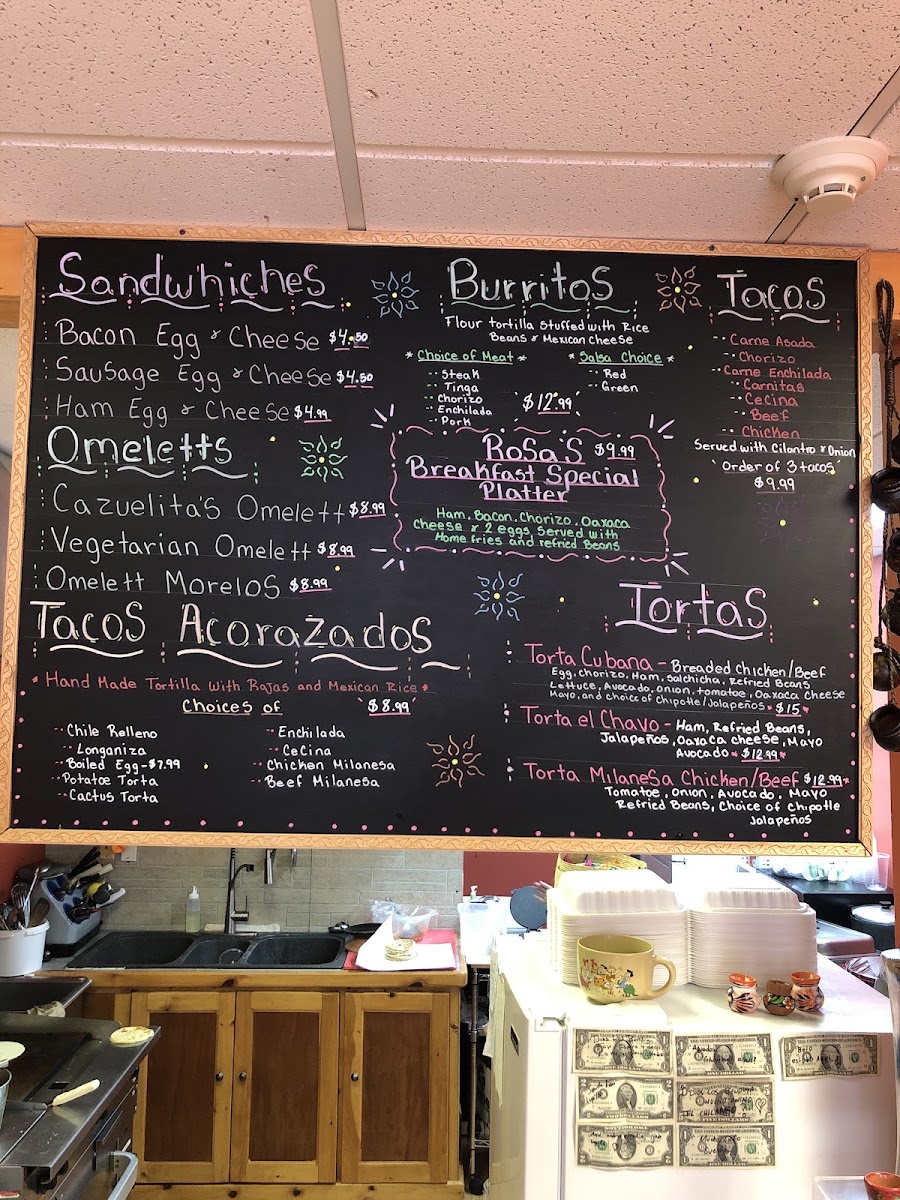 Sandwhiches
Bacon Egg & Cheese $4.50
Sausage Egg & Cheese $4.50
Ham Egg & Cheese $4.99
Omeletts
Cazuelita's Omelett $8.99
Vegetarian Omelett $8.99
Omelett Morelos $8.99
Tacos Acorazados
* Hand Made Tortilla with Rajas and Mexican Rice *
Choices of $8.99
-- Chile Relleno
-- Longaniza
-- Boiled Egg-$7.99
-- Potatoe Torta
-- Cactus Torta
-- Enchilada
-- Cecina
-- Chicken Milanesa
-- Beef Milanesa
Burritos
Flour tortilla stuffed with Rice
Beans & Mexican Cheese
* Choice of Meat *
-- Steak
-- Tinga
-- Chorizo
-- Enchilada
-- Pork
* Salsa Choice *
-- Red
-- Green
$12.99
Rosa's $9.99
Breakfast Special
Platter
Ham, Bacon, Chorizo, Oaxaca
Cheese & 2 eggs, Served with
Home fries and refried Beans
Tacos
-- Carne Asada
-- Chorizo
-- Carne Enchilada
-- Carnitas
-- Cecina
-- Beef
-- Chicken
Served with Cilantro & Onion
Order of 3 tacos
$9.99
Tortas
Torta Cubana - Breaded Chicken/Beef
Egg, Chorizo, Ham, Salchicha, Refried Beans
Lettuce, Avocado, Onion, tomatoe, Oaxaca Cheese
Mayo, and choice of Chipotle/Jalapeños * $15 *
Torta el Chavo - Ham, Refried Beans,
Jalapeños, Oaxaca cheese, Mayo
Avocado * $12.99 *
Torta Milanesa Chicken/Beef $12.99*
Tomatoe, Onion, Avocado, Mayo
Refried Beans, Choice of Chipotle
Jalapeños